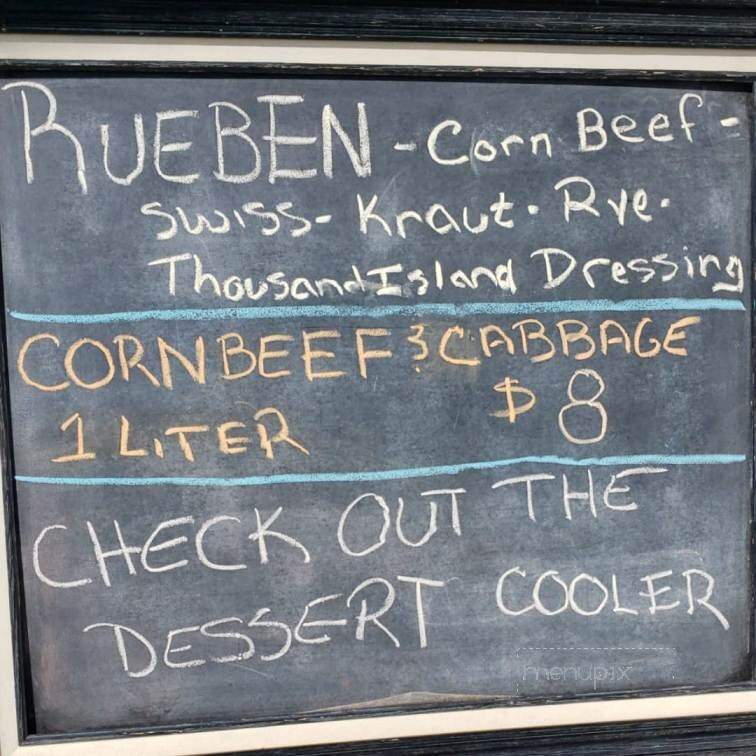 RUEBEN - Corn Beef -
Swiss - Kraut · Rye ·
Thousand Island Dressing
CORN BEEF & CABBAGE
1 LITER $8
CHECK OUT THE
DESSERT COOLER
menupix